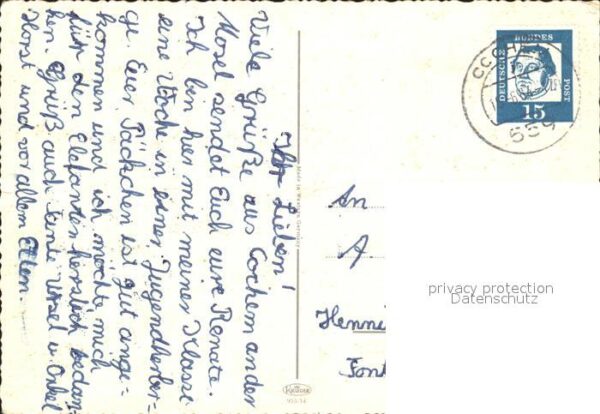 Ihr Lieben!
Viele Grüße aus Cochem an der
Mosel sendet Euch eure Renate.
Ich bin hier mit meiner Klasse
eine Woche in einer Jugendherber-
ge. Euer Päckchen ist gut ange-
kommen und ich möchte mich
für den Elefanten herzlich bedan-
ken. Grüß auch Tante Ursel u. Onkel
Horst und vor allem Ellen.
Made in Western Germany
KRÜGER
DEUTSCHE
BUNDES
POST
15
COCHE
559
An
A.
Henni
Font
privacy protection
Datenschutz